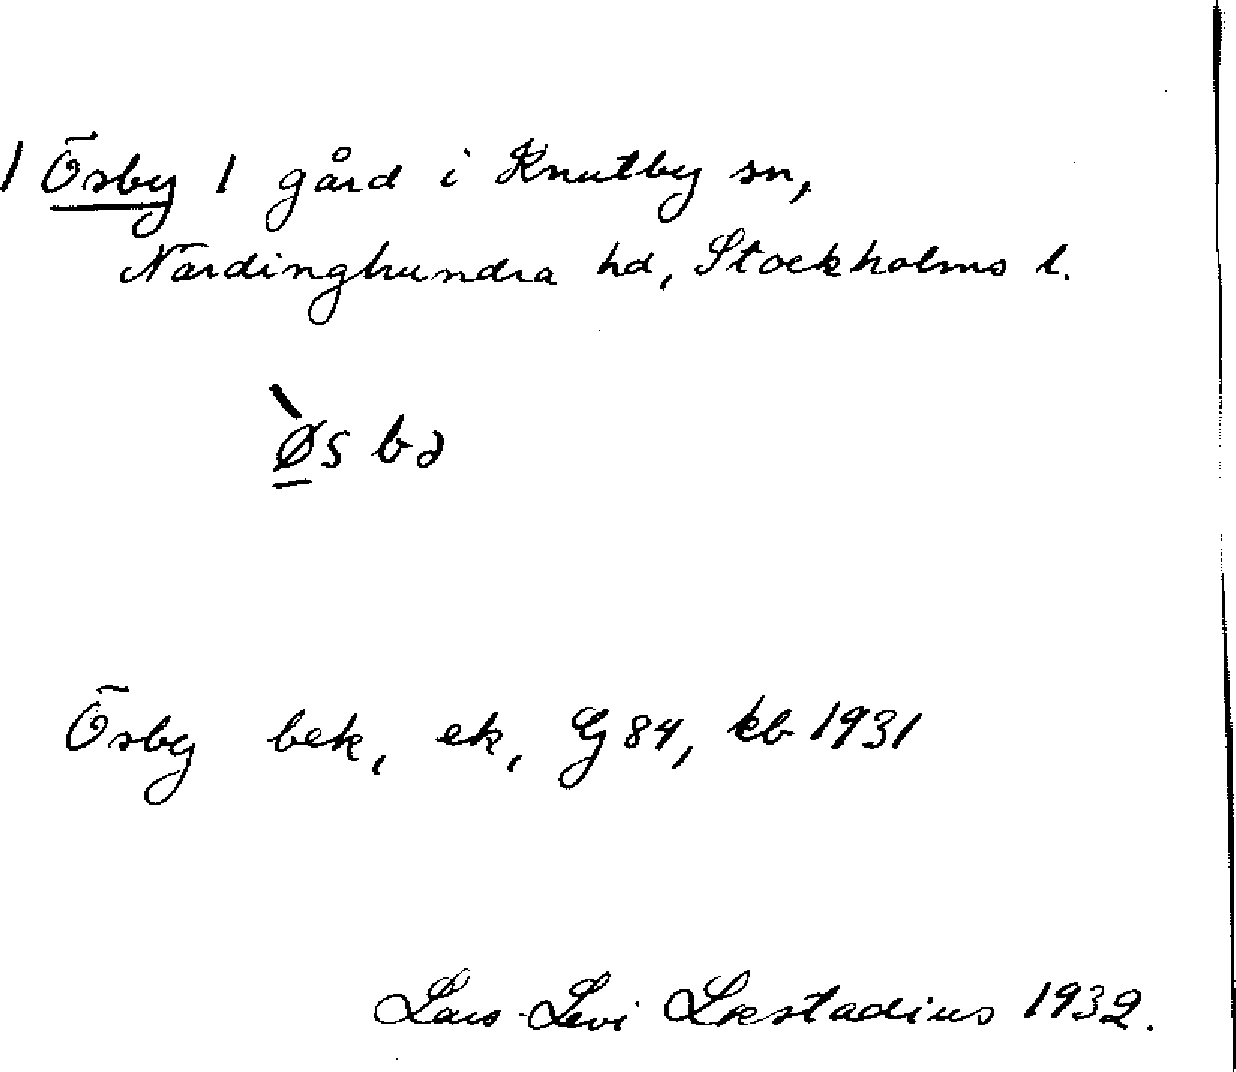 1 Ösby 1 gård i Knutby sn,
Närdinghundra hd, Stockholms l.
`Øs bə
Ösby bek, ek, G 84, kb 1931
Lars-Levi Læstadius 1932.